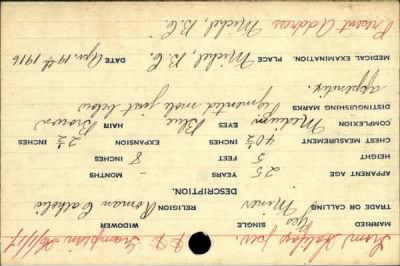 From Halifax
MARRIED Yes SINGLE WIDOWER
TRADE OR CALLING Miner RELIGION Roman Catholic
DESCRIPTION.
APPARENT AGE 25 YEARS - MONTHS
HEIGHT 5 FEET 8 INCHES
CHEST MEASUREMENT 40½ INCHES EXPANSION 2½ INCHES
COMPLEXION Medium EYES Blue HAIR Brown
DISTINGUISHING MARKS Pigmented mole just below
appendix.
MEDICAL EXAMINATION. PLACE Michel, B.C. DATE Apr. 19th 1916
Present Address Michel, B.C.